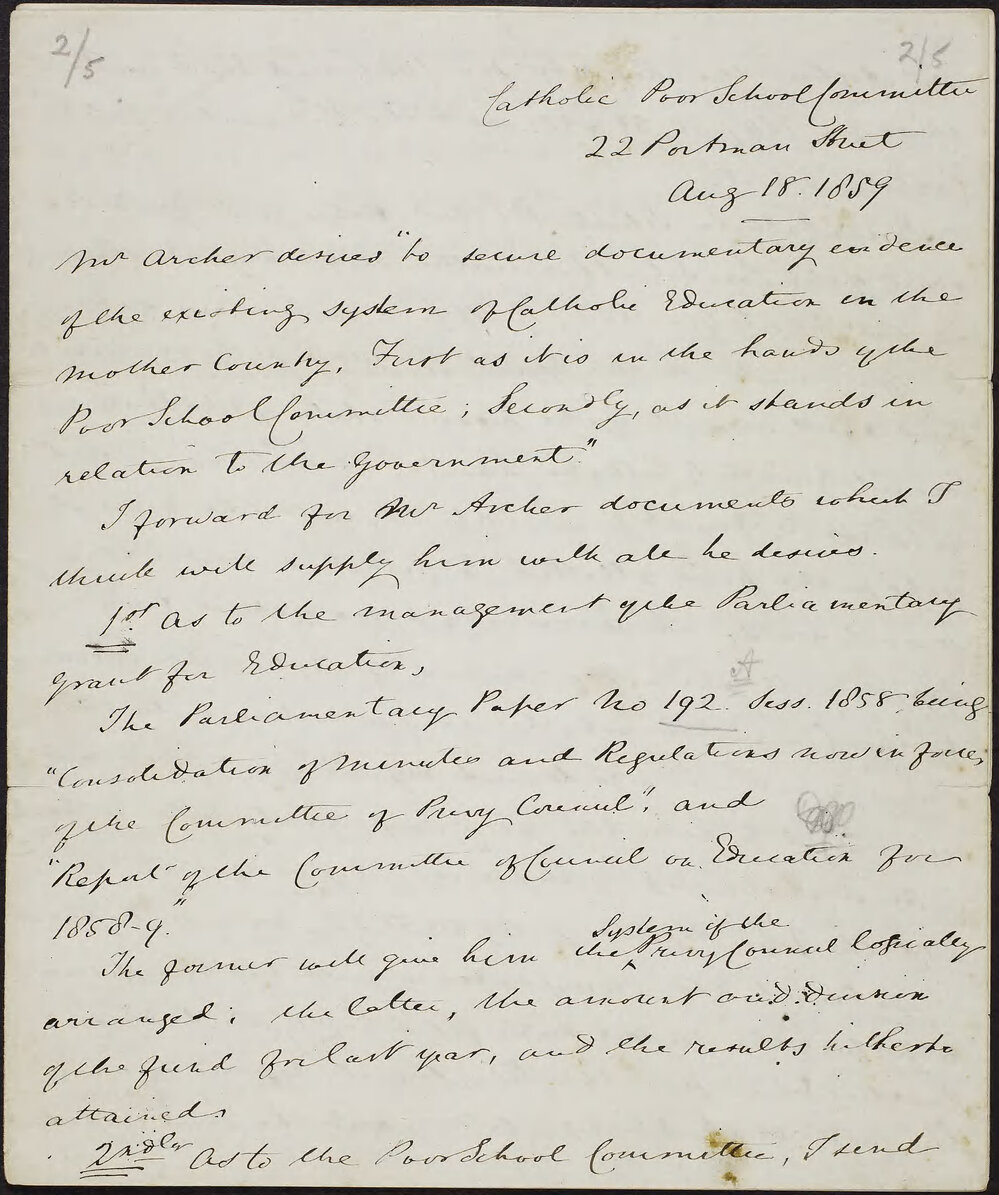 2/5
2/5
Catholic Poor School Committee
22 Portman Street
Aug 18. 1859
Mr Archer desires "to secure documentary evidence
of the existing system of Catholic Education in the
Mother Country, First as it is in the hands of the
Poor School Committee; Secondly, as it stands in
relation to the Government."
I forward for Mr Archer documents which I
think will supply him with all he desires.
1st. As to the management of the Parliamentary
grant for Education,
A
The Parliamentary Paper No 192. Sess. 1858, being
"Consolidation of Minutes and Regulations now in force,
of the Committee of Privy Council", and
"Report of the Committee of Council on Education for
1858-9."
System of the
The former will give him the Privy Council logically
arranged; the latter, the amount and division
of the fund for last year, and the results hitherto
attained.
2ndly As to the Poor School Committee, I send